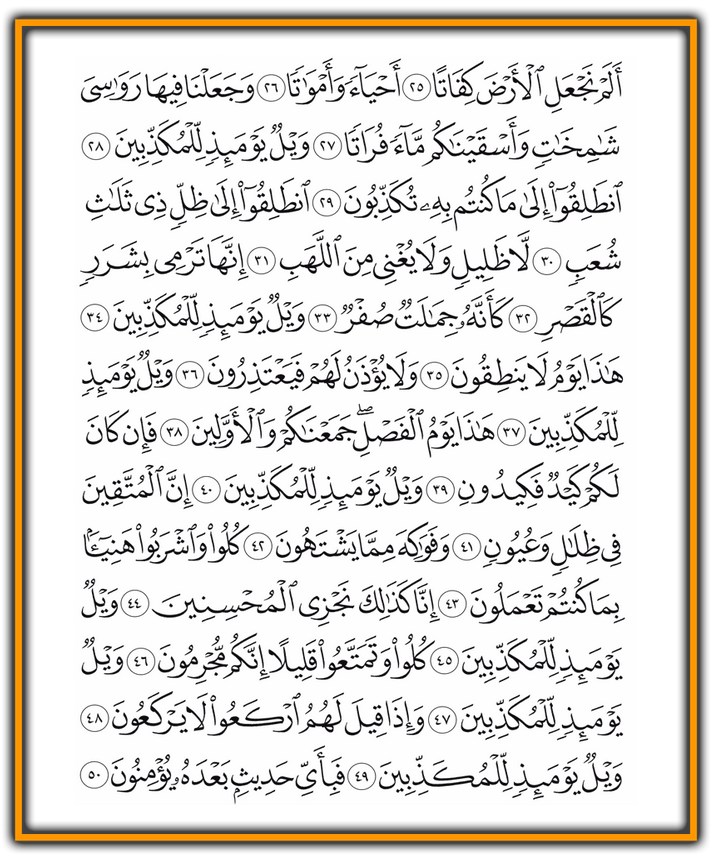 أَلَمْ نَجْعَلِ ٱلْأَرْضَ كِفَاتًا ٢٥ أَحْيَآءً وَأَمْوَٰتًا ٢٦ وَجَعَلْنَا فِيهَا رَوَٰسِىَ
شَٰمِخَٰتٍ وَأَسْقَيْنَٰكُم مَّآءً فُرَاتًا ٢٧ وَيْلٌ يَوْمَئِذٍ لِّلْمُكَذِّبِينَ ٢٨
ٱنطَلِقُوٓا۟ إِلَىٰ مَا كُنتُم بِهِۦ تُكَذِّبُونَ ٢٩ ٱنطَلِقُوٓا۟ إِلَىٰ ظِلٍّ ذِى ثَلَٰثِ
شُعَبٍ ٣٠ لَّا ظَلِيلٍ وَلَا يُغْنِى مِنَ ٱللَّهَبِ ٣١ إِنَّهَا تَرْمِى بِشَرَرٍ
كَٱلْقَصْرِ ٣٢ كَأَنَّهُۥ جِمَٰلَتٌ صُفْرٌ ٣٣ وَيْلٌ يَوْمَئِذٍ لِّلْمُكَذِّبِينَ ٣٤
هَٰذَا يَوْمُ لَا يَنطِقُونَ ٣٥ وَلَا يُؤْذَنُ لَهُمْ فَيَعْتَذِرُونَ ٣٦ وَيْلٌ يَوْمَئِذٍ
لِّلْمُكَذِّبِينَ ٣٧ هَٰذَا يَوْمُ ٱلْفَصْلِ ۖ جَمَعْنَٰكُمْ وَٱلْأَوَّلِينَ ٣٨ فَإِن كَانَ
لَكُمْ كَيْدٌ فَكِيدُونِ ٣٩ وَيْلٌ يَوْمَئِذٍ لِّلْمُكَذِّبِينَ ٤٠ إِنَّ ٱلْمُتَّقِينَ
فِى ظِلَٰلٍ وَعُيُونٍ ٤١ وَفَوَٰكِهَ مِمَّا يَشْتَهُونَ ٤٢ كُلُوا۟ وَٱشْرَبُوا۟ هَنِيٓـًٔۢا
بِمَا كُنتُمْ تَعْمَلُونَ ٤٣ إِنَّا كَذَٰلِكَ نَجْزِى ٱلْمُحْسِنِينَ ٤٤ وَيْلٌ
يَوْمَئِذٍ لِّلْمُكَذِّبِينَ ٤٥ كُلُوا۟ وَتَمَتَّعُوا۟ قَلِيلًا إِنَّكُم مُّجْرِمُونَ ٤٦ وَيْلٌ
يَوْمَئِذٍ لِّلْمُكَذِّبِينَ ٤٧ وَإِذَا قِيلَ لَهُمُ ٱرْكَعُوا۟ لَا يَرْكَعُونَ ٤٨
وَيْلٌ يَوْمَئِذٍ لِّلْمُكَذِّبِينَ ٤٩ فَبِأَىِّ حَدِيثٍۭ بَعْدَهُۥ يُؤْمِنُونَ ٥٠